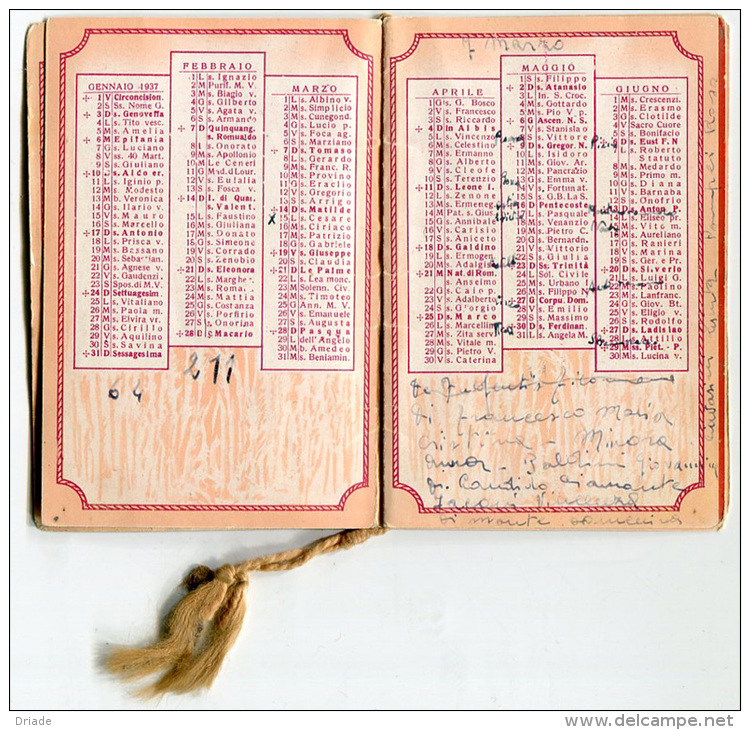 FEBBRAIO
1 L s. Ignazio
2 M Purif. M. V.
3 M s. Biagio v.
4 G s. Gilberto
5 V s. Agata v.
6 S s. Armando
✢ 7 D Quinquang.
s. Romualdo
8 L s. Onorato
9 M s. Apollonio
10 M Le Ceneri
11 G M.V. d. Lour.
12 V s. Eulalia
13 S s. Fosca v.
✢ 14 D I. di Quar.
s. Valent.
15 L s. Faustino
16 M s. Giuliana
17 M s. Donato
18 G s. Simeone
19 V s. Corrado
20 S s. Zenobio
✢ 21 D s. Eleonora
22 L s. Margher.
23 M s. Roma.
24 M s. Mattia
25 G s. Costanza
26 V s. Porfirio
27 S s. Onorina
✢ 28 D s. Macario
GENNAIO - 1937
✢ 1 V Circoncision.
2 S Ss. Nome G.
✢ 3 D s. Genoveffa
4 L s. Tito vesc.
5 M s. Amelia
✢ 6 M Epifania
7 G s. Luciano
8 V ss. 40 Mart.
9 S s. Giuliano
✢ 10 D s. Aldo er.
11 L s. Iginio p.
12 M s. Modesto
13 M b. Veronica
14 G s. Ilario v.
15 V s. Mauro
16 S s. Marcello
✢ 17 D s. Antonio
18 L s. Prisca v.
19 M s. Bassano
20 M s. Sebastian.
21 G s. Agnese v.
22 V s. Gaudenzi.
23 S Spos. di M.V.
✢ 24 D Settuagesim.
25 L s. Vitaliano
26 M s. Paola m.
27 M s. Elvira vr.
28 G s. Cirillo
29 V s. Aquilino
30 S s. Savina
✢ 31 D Sessagesima
MARZO
1 L s. Albino v.
2 M s. Simplicio
3 M s. Cunegond.
4 G s. Lucio p.
5 V s. Foca ag.
6 S s. Marziano
✢ 7 D s. Tomaso
8 L s. Gerardo
9 M s. Franc. R.
10 M s. Provino
11 G s. Eraclio
12 V s. Gregorio
13 S s. Arrigo
✢ 14 D s. Matilde
x 15 L s. Cesare
16 M s. Ciriaco
17 M s. Patrizio
18 G s. Gabriele
✢ 19 V s. Giuseppe
20 S s. Claudia
✢ 21 D Le Palme
22 L s. Lea monc.
23 M Solenn. Civ.
24 M s. Timoteo
25 G Ann. M. V.
26 V s. Emanuele
27 S s. Augusta
✢ 28 D Pasqua
29 L dell'Angelo
30 M b. Amedeo
31 M s. Beniamin.
64 211
7 Marzo
MAGGIO
1 S s. Filippo
✢ 2 D s. Atanasio
3 L In. S. Croc.
4 M s. Gottardo
5 M s. Pio V. p.
✢ 6 G Ascen. N. S.
7 V s. Stanislao
8 S s. Vittore
✢ 9 D s. Gregor. N.
10 L s. Isidoro
11 M s. Giov. A.
12 M s. Pancrazio
13 G s. Emma v.
14 V s. Fortunat.
15 S s. G.B. La S.
✢ 16 D Pentecoste
17 L s. Pasquale
18 M s. Venanzio
19 M s. Pietro C.
20 G s. Bernardi.
21 V s. Vittorio
22 S s. Giulia
✢ 23 D Ss. Trinità
24 L Sol. Civile
25 M s. Urbano I
26 M s. Filippo N.
✢ 27 G Corpu. Dom.
28 V s. Emilio
29 S s. Massimo
✢ 30 D s. Ferdinan.
31 L s. Angela M.
APRILE
1 G s. G. Bosco
2 V s. Francesco
3 S s. Riccardo
✢ 4 D in Albis
5 L s. Vincenzo
6 M s. Celestino
7 M s. Ermanno
8 G s. Alberto
9 V s. Cleofe
10 S s. Terenzio
✢ 11 D s. Leone I.
12 L s. Zenone
13 M s. Ermeneg.
14 M Pat. s. Gius.
15 G s. Annibale
16 V s. Caristo
17 S s. Aniceto
✢ 18 D s. Galdino
19 L s. Ermogen
20 M s. Adalgisa
✢ 21 M Nat. di Rom.
s. Anselmo
22 G s. Caio p.
23 V s. Adalberto
24 S s. Giorgio
✢ 25 D s. Marco
26 L s. Marcellin.
27 M s. Zita serv.
28 M s. Vitale m.
29 G s. Pietro V.
30 V s. Caterina
GIUGNO
1 M s. Crescenz.
2 M s. Erasmo
3 G s. Clotilde
4 V Sacro Cuore
5 S s. Bonifacio
✢ 6 D s. Eust F.N
7 L s. Roberto
Statuto
8 M s. Medardo
9 M s. Primo
10 G s. Diana
11 V s. Barnaba
12 S s. Onofrio
✢ 13 D s. Anton. P.
14 L s. Eliseo pr.
15 M s. Vito m.
16 M s. Aureliano
17 G s. Ranieri
18 V s. Marina
19 S s. Ger. e Pr.
✢ 20 D s. Silverio
21 L s. Luigi G.
23 M s. Lanfranc.
24 G s. Giov. Bt.
25 V s. Eligio
26 S s. Rodolfo
✢ 27 D s. Ladislao
28 L s. Attilio
✢ 29 M ss. Piet. - P.
30 M s. Lucina v.
di Francesco Maria
Cristina - Minora
Baldini Giovanni
di Candido Diamante
di monte
Driade
www.delcampe.net